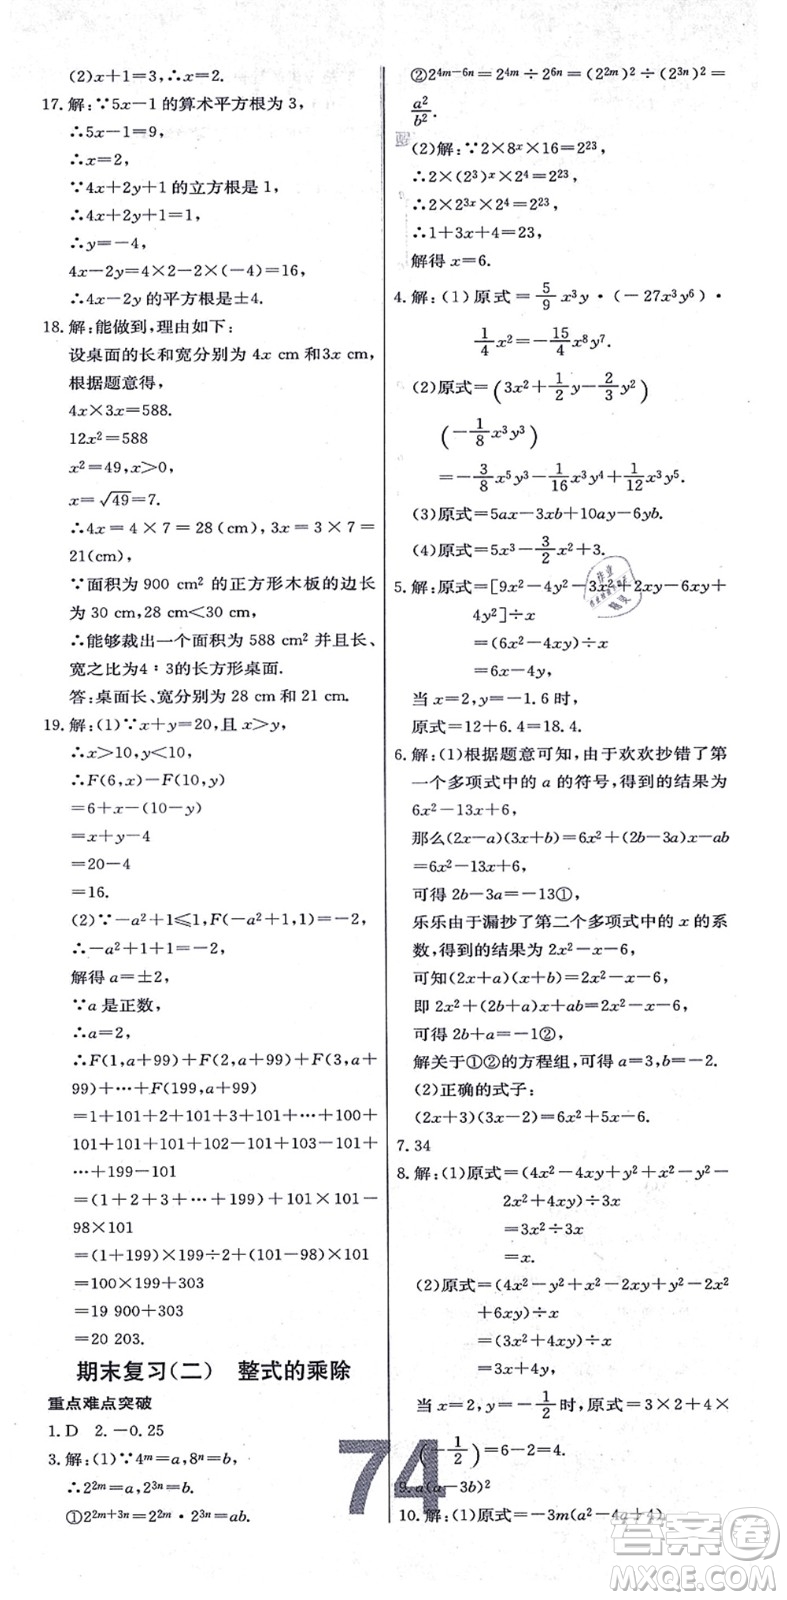 (2)x+1=3,∴x=2.
17.解:∵5x-1的算术平方根为3,
∴5x-1=9,
∴x=2,
∵4x+2y+1的立方根是1,
∴4x+2y+1=1,
∴y=-4,
4x-2y=4×2-2×(-4)=16,
∴4x-2y的平方根是±4.
18.解:能做到,理由如下:
设桌面的长和宽分别为4x cm和3x cm,
根据题意得,
4x×3x=588.
12x²=588
x²=49,x>0,
x=√49=7.
∴4x=4×7=28(cm),3x=3×7=
21(cm),
∵面积为900 cm²的正方形木板的边长
为30 cm,28 cm<30 cm,
∴能够裁出一个面积为588 cm²并且长、
宽之比为4∶3的长方形桌面.
答:桌面长、宽分别为28 cm和21 cm.
19.解:(1)∵x+y=20,且x>y,
∴x>10,y<10,
∴F(6,x)-F(10,y)
=6+x-(10-y)
=x+y-4
=20-4
=16.
(2)∵-a²+1≤1,F(-a²+1,1)=-2,
∴-a²+1+1=-2,
解得a=±2,
∵a是正数,
∴a=2,
∴F(1,a+99)+F(2,a+99)+F(3,a+
99)+…+F(199,a+99)
=1+101+2+101+3+101+…+101+
101+101+101-101+102-101+…
+199-101
=(1+2+3+…+199)+101×101-
98×101
=(1+199)×199÷2+(101-98)×101
=100×199+303
=19 900+303
=20 203.
期末复习(二) 整式的乘除
重点难点突破
1.D 2.-0.25
3.解:(1)∵4ᵐ=a,8ⁿ=b,
∴2²ᵐ=a,2³ⁿ=b.
①2²ᵐ⁺³ⁿ=2²ᵐ·2³ⁿ=ab.
②2⁴ᵐ⁻⁶ⁿ=2⁴ᵐ÷2⁶ⁿ=(2²ᵐ)²÷(2³ⁿ)²=
a²/b².
(2)解:∵2×8ˣ×16=2²³,
∴2×(2³)ˣ×2⁴=2²³,
∴2×2³ˣ×2⁴=2²³,
∴1+3x+4=23,
解得x=6.
4.解:(1)原式=5/9x³y·(-27x³y⁶)·
1/4x²=-15/4x⁸y⁷.
(2)原式=(3x²+1/2y-2/3y²)
(-1/8x³y³)
=-3/8x⁵y³-1/16x³y⁴+1/12x³y⁵.
(3)原式=5ax-3xb+10ay-6yb.
(4)原式=5x³-3/2x²+3.
5.解:原式=[9x²-4y²-3x²+2xy-6xy+
4y²]÷x
=(6x²-4xy)÷x
=6x-4y,
当x=2,y=-1.6时,
原式=12+6.4=18.4.
6.解:(1)根据题意可知,由于欢欢抄错了第
一个多项式中的a的符号,得到的结果为
6x²-13x+6,
那么(2x-a)(3x+b)=6x²+(2b-3a)x-ab
=6x²-13x+6,
可得2b-3a=-13①,
乐乐由于漏抄了第二个多项式中的x的系
数,得到的结果为2x²-x-6,
可知(2x+a)(x+b)=2x²-x-6
即2x²+(2b+a)x+ab=2x²-x-6,
可得2b+a=-1②,
解关于①②的方程组,可得a=3,b=-2.
(2)正确的式子:
(2x+3)(3x-2)=6x²+5x-6.
7.34
8.解:(1)原式=(4x²-4xy+y²+x²-y²-
2x²+4xy)÷3x
=3x²÷3x
=x.
(2)原式=(4x²-y²+x²-2xy+y²-2x²
+4xy)÷x
=(3x²+2xy)÷x
=3x+2y,
当x=2,y=-1/2时,原式=3×2+2×
(-1/2)=6-2=4.
9.a(a-3b)²
10.解:(1)原式=-3m(a²-4a+4)
74
答案圈
MXQE.COM